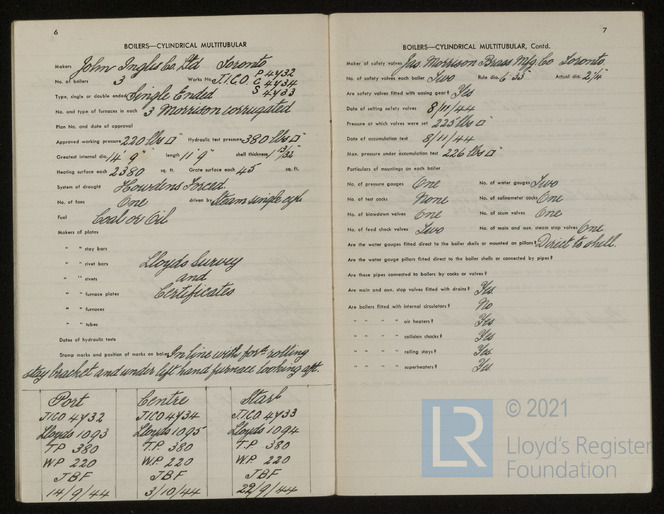 6
BOILERS—CYLINDRICAL MULTITUBULAR
Makers John Inglis Co. Ltd. Toronto
No. of boilers 3 Works No. J.I.CO. P 4432
C 4434
S 4433
Type, single or double ended Single Ended
No. and type of furnaces in each 3 Morrison corrugated
Plan No. and date of approval
Approved working pressure 220 lbs □" Hydraulic test pressure 380 lbs □"
Greatest internal dia. 14' 9" length 11' 9" shell thickness
Heating surface each 2380 sq. ft. Grate surface each 45 sq. ft.
System of draught Howdens Forced
No. of fans One driven by Steam single cyl.
Fuel Coal or Oil
Makers of plates
" " stay bars
" " rivet bars Lloyds Survey
" " rivets and
" " furnace plates Certificates
" " furnaces
" " tubes
Dates of hydraulic tests
Stamp marks and position of marks on boiler In line with for'd rolling
stay bracket and under left hand furnace looking aft.
Port Centre Starb
J.I.CO 4432 J.I.CO 4434 J.I.CO 4433
Lloyds 1093 Lloyds 1095 Lloyds 1094
T.P. 380 T.P. 380 T.P. 380
W.P. 220 W.P. 220 W.P. 220
J.B.F J.B.F J.B.F
14/9/44 3/10/44 22/9/44
7
BOILERS—CYLINDRICAL MULTITUBULAR, Contd.
Maker of safety valves Jas Morrison Brass Mfg. Co Toronto.
No. of safety valves each boiler Two Rule dia. Actual dia.
Are safety valves fitted with easing gear? Yes
Date of setting safety valves 8/11/44
Pressure at which valves were set 225 lbs □"
Date of accumulation test 8/11/44
Max. pressure under accumulation test 226 lbs □"
Particulars of mountings on each boiler
No. of pressure gauges One No. of water gauges Two
No. of test cocks None No. of salinometer cocks One
No. of blowdown valves One No. of scum valves One
No. of feed check valves Two No. of main and aux. steam stop valves One
Are the water gauges fitted direct to the boiler shells or mounted on pillars? Direct to shell
Are the water gauge pillars fitted direct to the boiler shells or connected by pipes?
Are these pipes connected to boilers by cocks or valves?
Are main and aux. stop valves fitted with drains? Yes
Are boilers fitted with internal circulators? No
" " " " air heaters? Yes
" " " " collision chocks? Yes
" " " " rolling stays? Yes
" " " " superheaters? Yes
LR © 2021
Lloyd's Register
Foundation